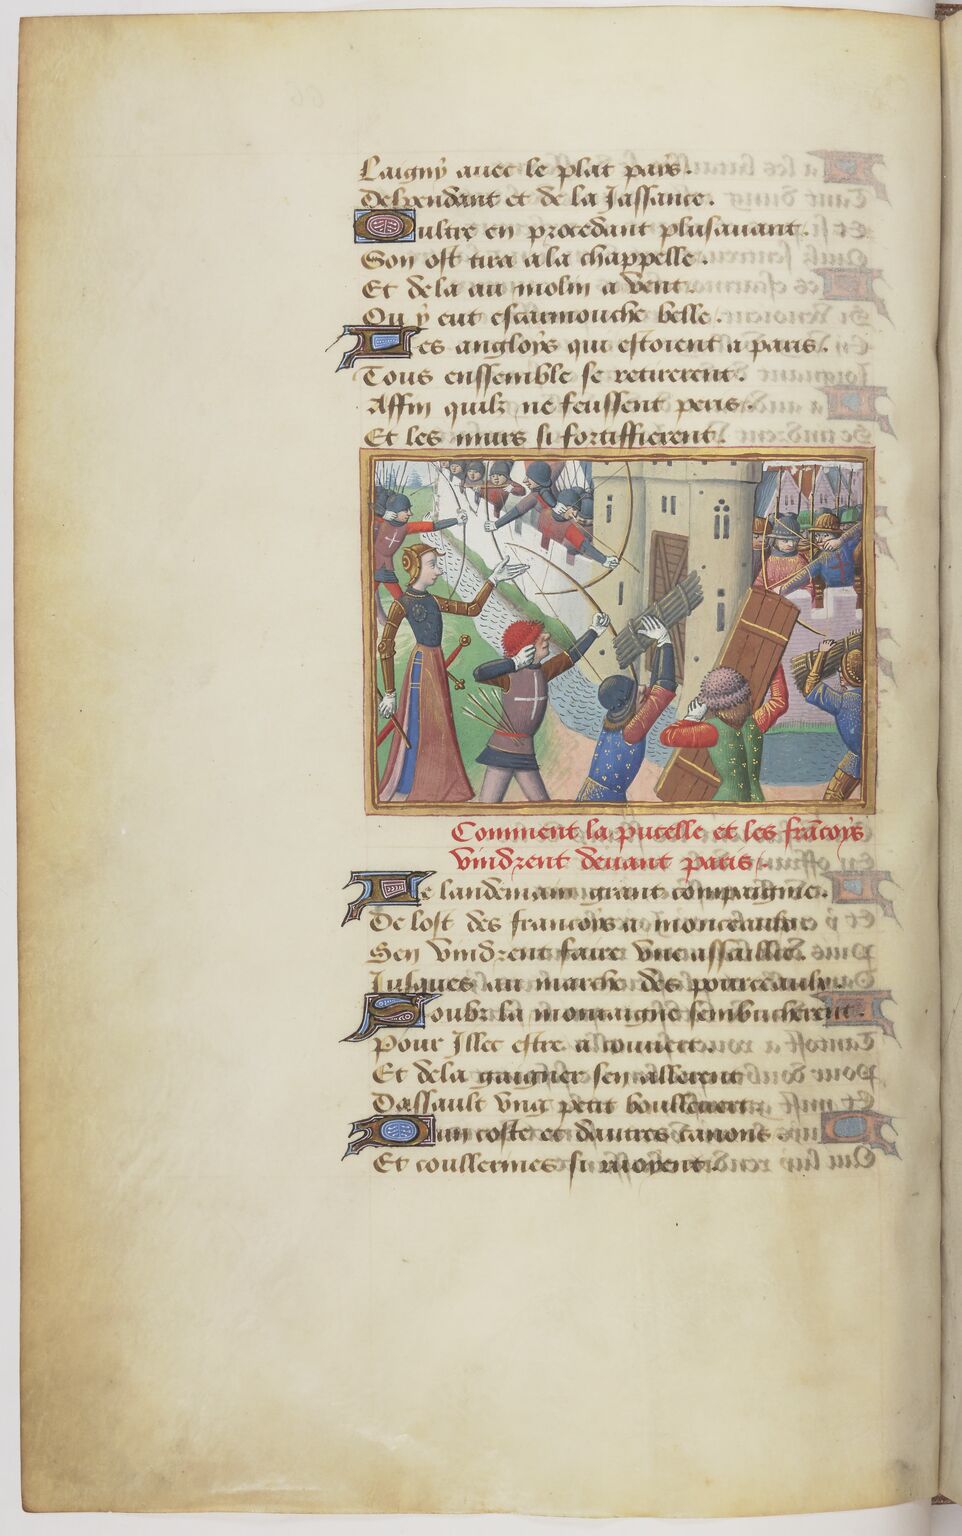 Laigny auec le plat pays.
Despendant et de la Jassance.
Oultre en procedant plusauant.
Son ost tira a la chappelle.
Et dela au molin a vent.
Ou y eut escarmouche belle.
Les angloys qui estoient a paris.
Tous enssemble se retirerent.
Affin quilz ne feussent peris.
Et les murs si fortiffierent.
Comment la pucelle et les francoys
vindrent deuant paris.
Le landemain grant compaignie.
De lost des francoys a monceaulx
Sen vindrent faire vne assaillie.
Jusques au marche des pourceaulx.
Soubz la montaigne sembucherent.
Pour Illec estre a couuert.
Et dela gaigner sen allerent
Dassault vng petit boulleuert.
Dun coste et dautres canons.
Et coullermes si ruoyent.